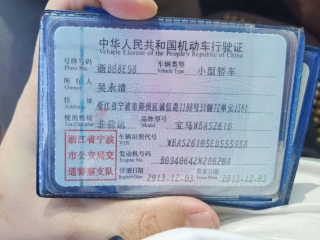 中华人民共和国机动车行驶证
Vehicle License of the People's Republic of China
号牌号码 浙BB8E98 车辆类型 小型轿车
Plate No. Vehicle Type
所有人
Owner
住址 浙江省宁波市鄞州区
Address
使用性质 非营运 品牌型号 宝马WBASZ610
Use Character Model
浙江省宁 车辆识别代号
VIN
波市公安局交 发动机号码
Engine No.
通警察支队 注册日期 2013-12-03 发证日期 2013-12-03
Register Date Issue Date